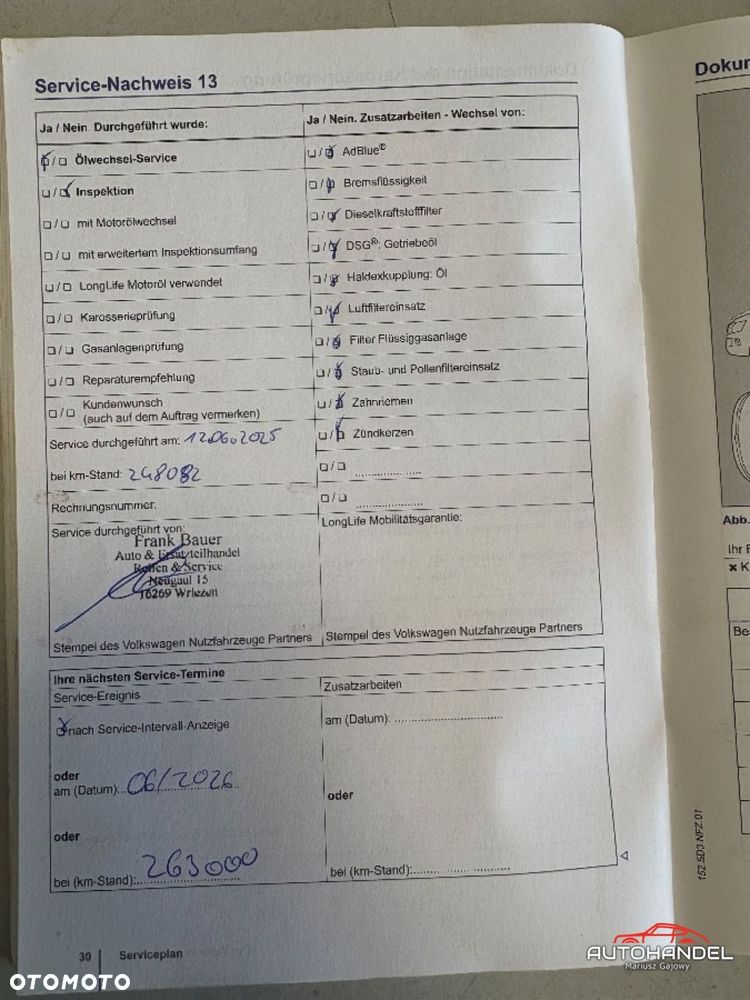 Service-Nachweis 13
Ja / Nein. Durchgeführt wurde:
☒/☐ Ölwechsel-Service
☐/☒ Inspektion
☐/☐ mit Motorölwechsel
☐/☐ mit erweitertem Inspektionsumfang
☐/☐ LongLife Motoröl verwendet
☐/☐ Karosserieprüfung
☐/☐ Gasanlagenprüfung
☐/☐ Reparaturempfehlung
☐/☐ Kundenwunsch
(auch auf dem Auftrag vermerken)
Service durchgeführt am: 12.06.2025
bei km-Stand: 248082
Rechnungsnummer:
Service durchgeführt von:
Frank Bauer
Auto & Ersatzteilhandel
Reifen & Service
Neugaul 15
16269 Wriezen
Stempel des Volkswagen Nutzfahrzeuge Partners
Ja / Nein. Zusatzarbeiten - Wechsel von:
☐/☒ AdBlue®
☐/☒ Bremsflüssigkeit
☐/☒ Dieselkraftstofffilter
☐/☒ DSG®: Getriebeöl
☐/☒ Haldexkupplung: Öl
☐/☒ Luftfiltereinsatz
☐/☒ Filter Flüssiggasanlage
☐/☒ Staub- und Pollenfiltereinsatz
☐/☒ Zahnriemen
☐/☒ Zündkerzen
☐/☐ ....................
☐/☐ ....................
LongLife Mobilitätsgarantie:
Stempel des Volkswagen Nutzfahrzeuge Partners
Ihre nächsten Service-Termine
Service-Ereignis
☒ nach Service-Intervall-Anzeige
oder
am (Datum): 06/2026
oder
bei (km-Stand): 263000
Zusatzarbeiten
am (Datum): ..............................
oder
bei (km-Stand): ..........................
30 | Serviceplan
Dokur
Abb.
Ihr F
× K
Be
152.5D3.NFZ.01
AUTOHANDEL
Mariusz Gajowy
OTOMOTO